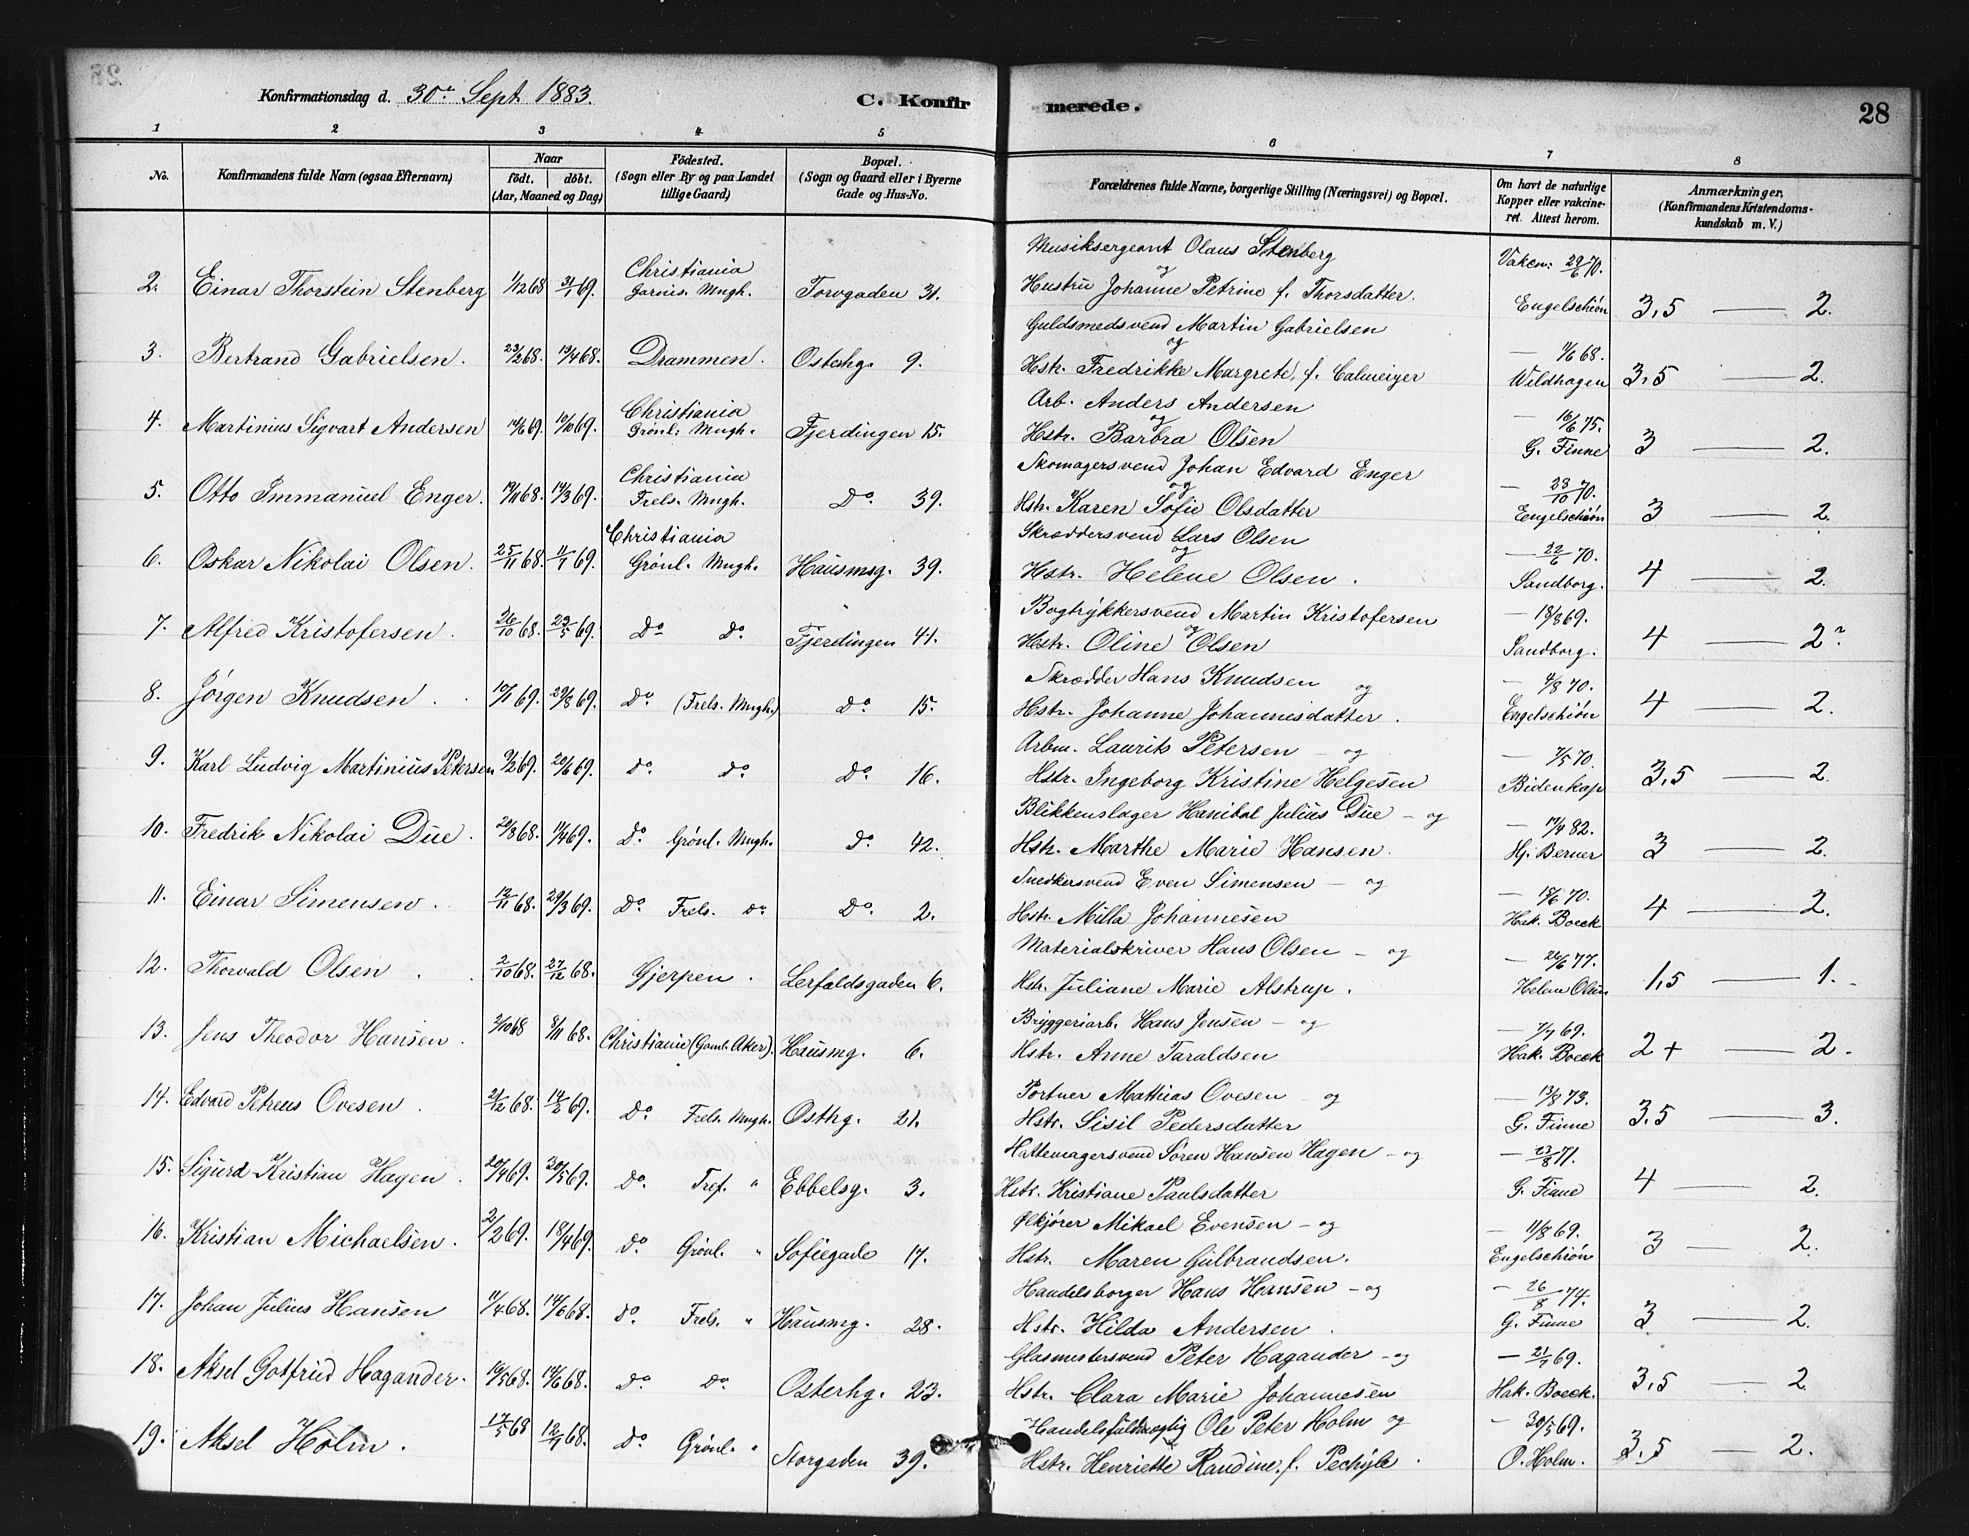 Konfirmationsdag d. 30te Sept 1883.
C. Konfir merede. 28
1 2 3 4 5 6 7 8
No. Konfirmandens fulde Navn (ogsaa Efternavn) Naar födt. döbt. (Aar, Maaned og Dag) Födested. (Sogn eller By og paa Landet tillige Gaard) Bopæl. (Sogn og Gaard eller i Byerne Gade og Hus-No. Forældrenes fulde Navne, borgerlige Stilling (Næringsvei) og Bopæl. Om havt de naturlige Kopper eller vakcineret. Attest herom. Anmærkninger. (Konfirmandens Kristendomskundskab m. V.)
Christiania Musiksergeant Olaus Stenberg og Vakcn: 29/6 70.
2. Einar Thorstein Stenberg 1/12 68 31/1 69. Garnis. Mngh. Torvgaden 31. Hustru Johanne Petrine f. Thorsdatter. Engelschiön 3,5 — 2.
Guldsmedsvend Martin Gabrielsen og — 11/6 68.
3. Bertrand Gabrielsen. 23/2 68. 13/4 68. Drammen. Osterhg. 9. Hstr. Fredrikke Margrete, f. Calmeiyer Wildhagen 3,5 — 2.
Christiania Arb. Anders Andersen og — 16/6 75.
4. Martinius Sigvart Andersen 14/6 69. 10/10 69. Grönl. Mngh. Fjerdingen 15. Hstr. Barbra Olsen G. Finne 3 — 2.
Christiania Skomagersvend Johan Edvard Enger og — 28/10 70.
5. Otto Immanuel Enger. 19/11 68. 14/3 69. Frels. Mngh. Do 39. Hstr. Karen Sofie Olsdatter Engelschiön 3 — 2.
Christiania Skræddersvend Lars Olsen og — 22/6 70.
6. Oskar Nikolai Olsen. 25/11 68. 11/1 69. Grönl. Mngh. Hausmsg. 39. Hstr. Helene Olsen. Sandborg. 4 — 2.
Bogtrykkersvend Martin Kristofersen og — 18/8 69.
7. Alfred Kristofersen. 26/10 68. 23/5 69. Do Do. Fjerdingen 41. Hstr. Oline Olsen Sandborg. 4 — 2?
Skrædder Hans Knudsen og — 4/8 70.
8. Jörgen Knudsen. 10/1 69. 29/8 69. Do (Frels. Mngh.) Do. 15. Hstr. Johanne Johannesdatter. Engelschiön 4 — 2.
Arbm. Laurits Petersen — og — 7/5 70.
9. Karl Ludvig Martinius Petersen 9/2 69. 20/6 69. Do. Do. Do. 16. Hstr. Ingeborg Kristine Helgesen Bidenkap 3,5 — 2.
Blikkenslager Hanibal Julius Due — og — 17/4 82.
10. Fredrik Nikolai Due. 20/8 68. 1/4 69. Do. Grönl. Mngh. Do. 42. Hstr. Marthe Marie Hansen. Hj. Berner 3 — 2.
Snedkersvend Even Simensen — og — 15/6 70.
11. Einar Simensen. 12/11 68. 29/3 69. Do. Frels. Do. Do. 2. Hstr. Milla Johannesen Hak. Boeck 4 — 2.
Materialskriver Hans Olsen — og — 26/6 77.
12. Thorvald Olsen. 2/10 68. 27/12 68. Gjerpen. Lerfaldsgaden 6. Hstr. Juliane Marie Alstrup. Helene Olsen 1,5 — 1.
Bryggeriarb. Hans Jensen — og — 7/7 69.
13. Jens Theodor Hansen. 3/10 68 8/11 68. Christiania (Gaml. Aker). Hausmg. 6. Hstr. Anne Taraldsen Hak. Boeck 2+ — 2.
Portner Mathias Ovesen — og — 13/8 73.
14. Edvard Petreus Ovesen. 21/12 68. 14/2 69. Do Frels. Mngh. Osthg. 21. Hstr. Sisil Pedersdatter G. Finne 3.5 — 3.
Hattemagersvend Sören Hansen Hagen — og — 23/8 71.
15. Sigurd Kristian Hagen. 20/4 69. 30/5 69. Do. Tref. " Ebbelsg. 3. Hstr. Kristiane Paulsdatter G. Finne 4 — 2.
Ølkjörer Mikael Evensen — og — 11/8 69.
16. Kristian Michaelsen. 2/2 69. 18/4 69. Do. Grönl. " Sofiegade 17. Hstr. Maren Gulbrandsen. Engelschiön 3 — 2.
Handelsborger Hans Hansen — og — 26/8 74.
17. Johan Julius Hansen 11/4 68. 14/6 68. Do. Frels. " Hausmg. 28. Hstr. Hilda Andersen. G. Finne 3 — 2.
Glasmestersvend Peter Hagander — og — 21/7 69.
18. Aksel Gotfried Hagander. 10/5 68. 14/6 68. Do Do. Osterhg. 23. Hstr. Clara Marie Johannesen Hak. Boeck. 3,5 — 2.
Handelsfuldmægtig Ole Peter Holm og — 30/5 69.
19. Aksel Holm. 17/5 68 12/7 68. Do. Grönl. " Storgaden 39. Hstr. Henriette Randine, f. Pechüle. O. Holm. 3.5 — 2.